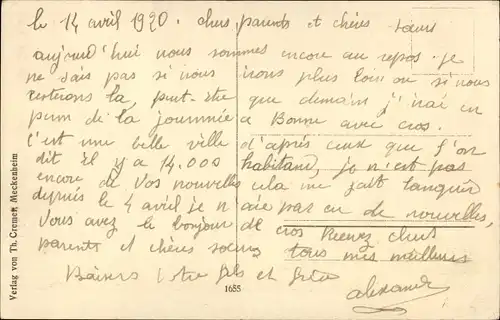 le 14 avril 1920. chers parents et chères sœurs
aujourd'hui nous sommes encore au repos. je
ne sais pas si nous irons plus loin ou si nous
resterons la, peut-etre que demain j'irai en
de la journnée a Bonne avec cros.
c'est une belle ville d'après ceux que l'on
dit il y a 14.000 habitand, je n'est pas
encore de vos nouvelles cela me fait languir
depuis le 4 avril je n aie pas eu de nouvelles,
Vous avez le bonjour de cros Recevez chers
parents et chères soeurs tous mes meilleurs
Baisers Votre fils et frère
alexandre
1655
Verlag von Th. Cremer, Meckenheim